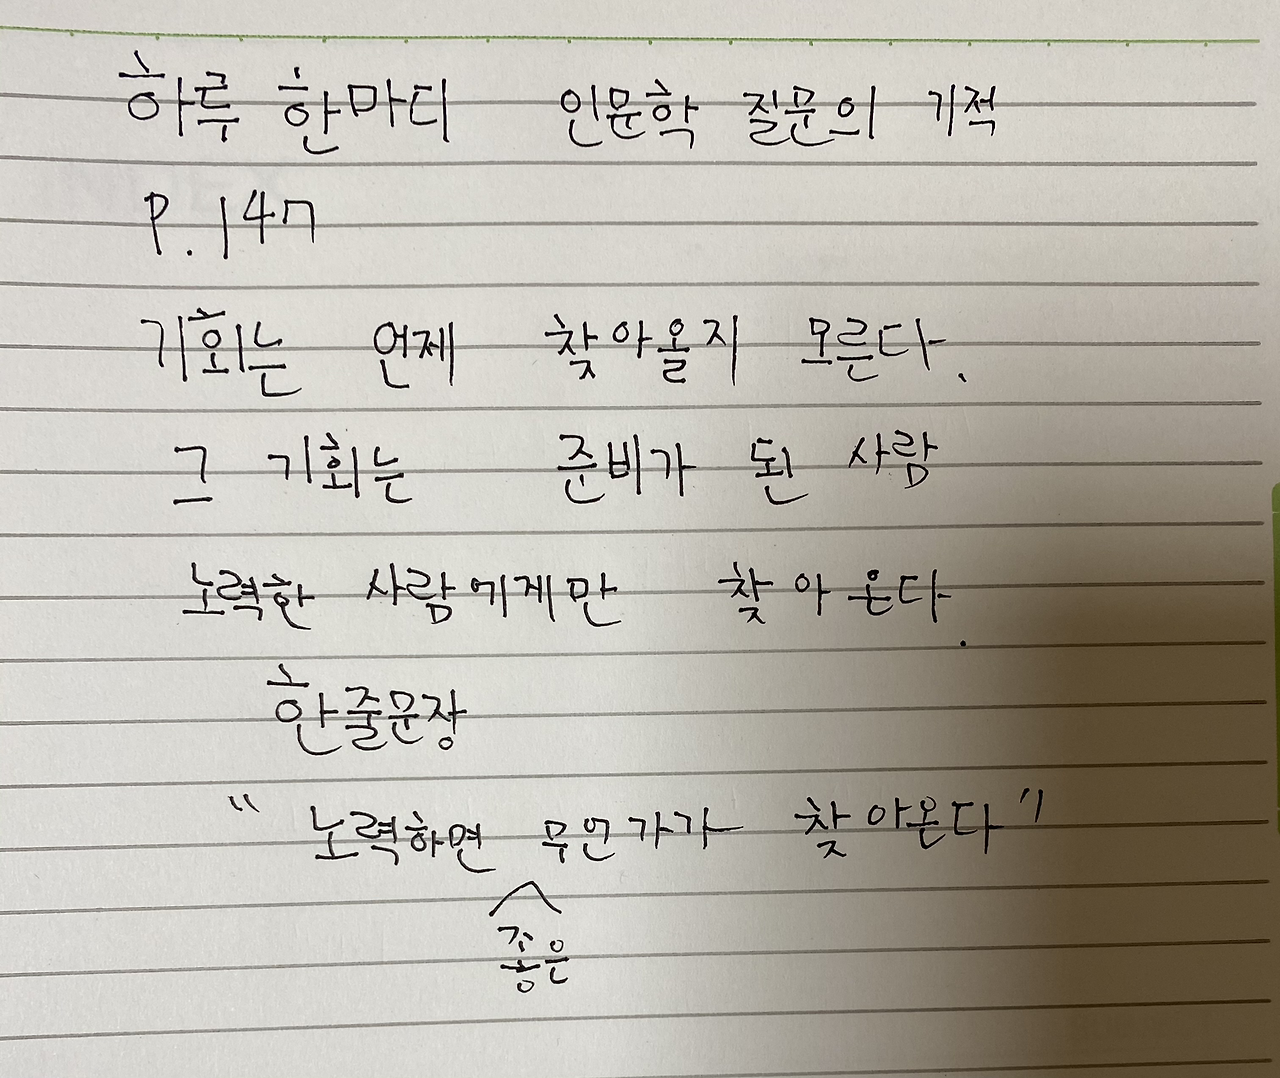 하루 한마디 인문학 질문의 기적
P.147
기회는 언제 찾아올지 모른다.
그 기회는 준비가 된 사람
노력한 사람에게만 찾아온다.
한줄문장
"노력하면 무언가가 찾아온다"
좋은